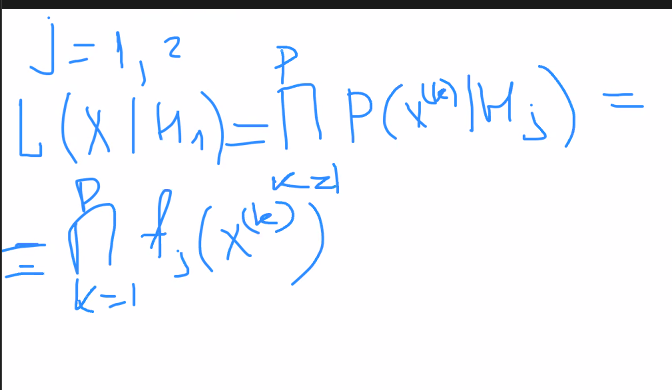 j = 1, 2
L(X | H₁) = ∏ₖ₌₁ᴾ P(x⁽ᵏ⁾ | Hⱼ) =
= ∏ₖ₌₁ᴾ fⱼ(x⁽ᵏ⁾)